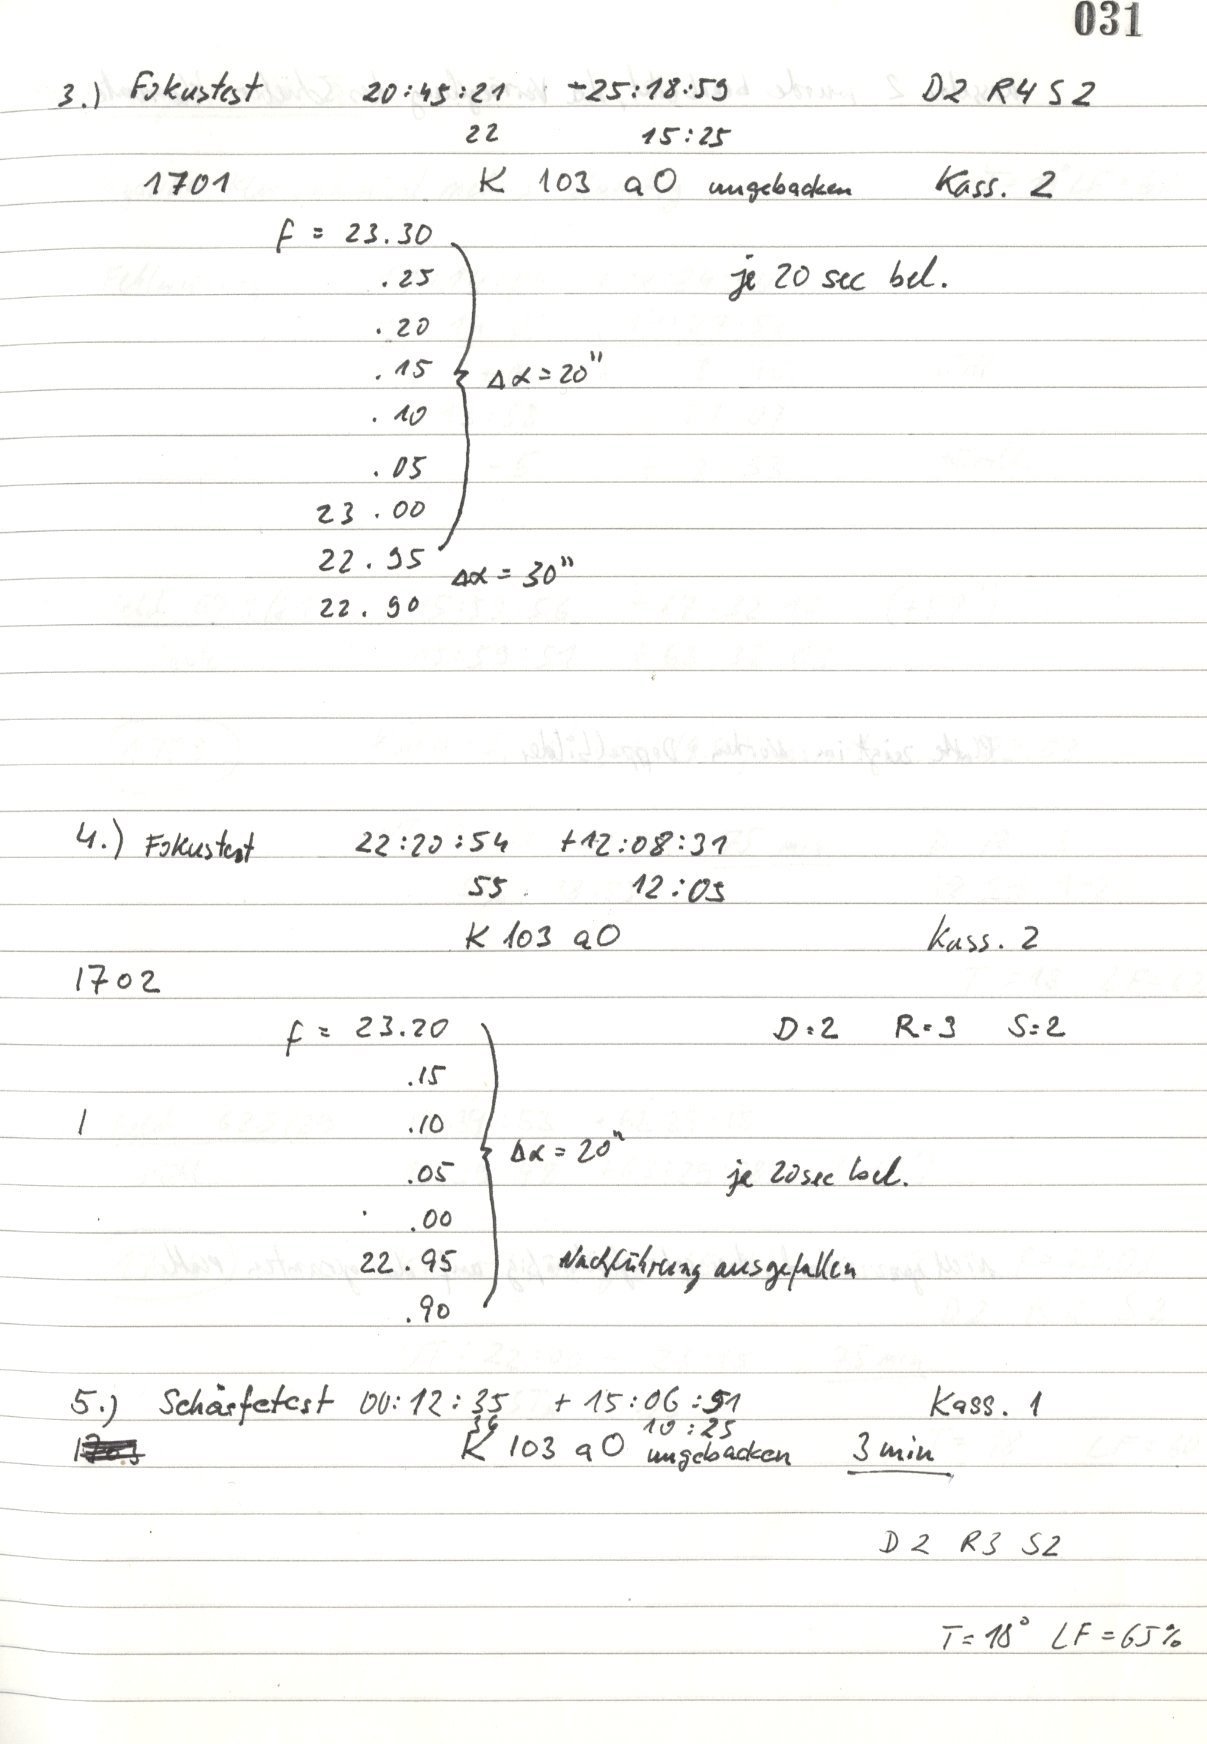 031
3.) Fokustest 20:45:21 -25:18:59 D2 R4 S2
22 15:25
1701 K 103 aO ungebacken Kass. 2
f = 23.30
.25 je 20 sec bel.
.20
.15 Δα = 20"
.10
.05
23.00
22.95 Δα = 30"
22.90
4.) Fokustest 22:20:54 +12:08:31
55 12:05
K 103 aO Kass. 2
1702
f = 23.20 D=2 R=3 S=2
.15
.10
Δα = 20"
.05 je 20sec bel.
.00
22.95 Nachführung ausgefallen
.90
5.) Schärfetest 00:12:35 +15:06:51 Kass. 1
36 10:25
K 103 aO ungebacken 3 min
D2 R3 S2
T=18° LF=65%